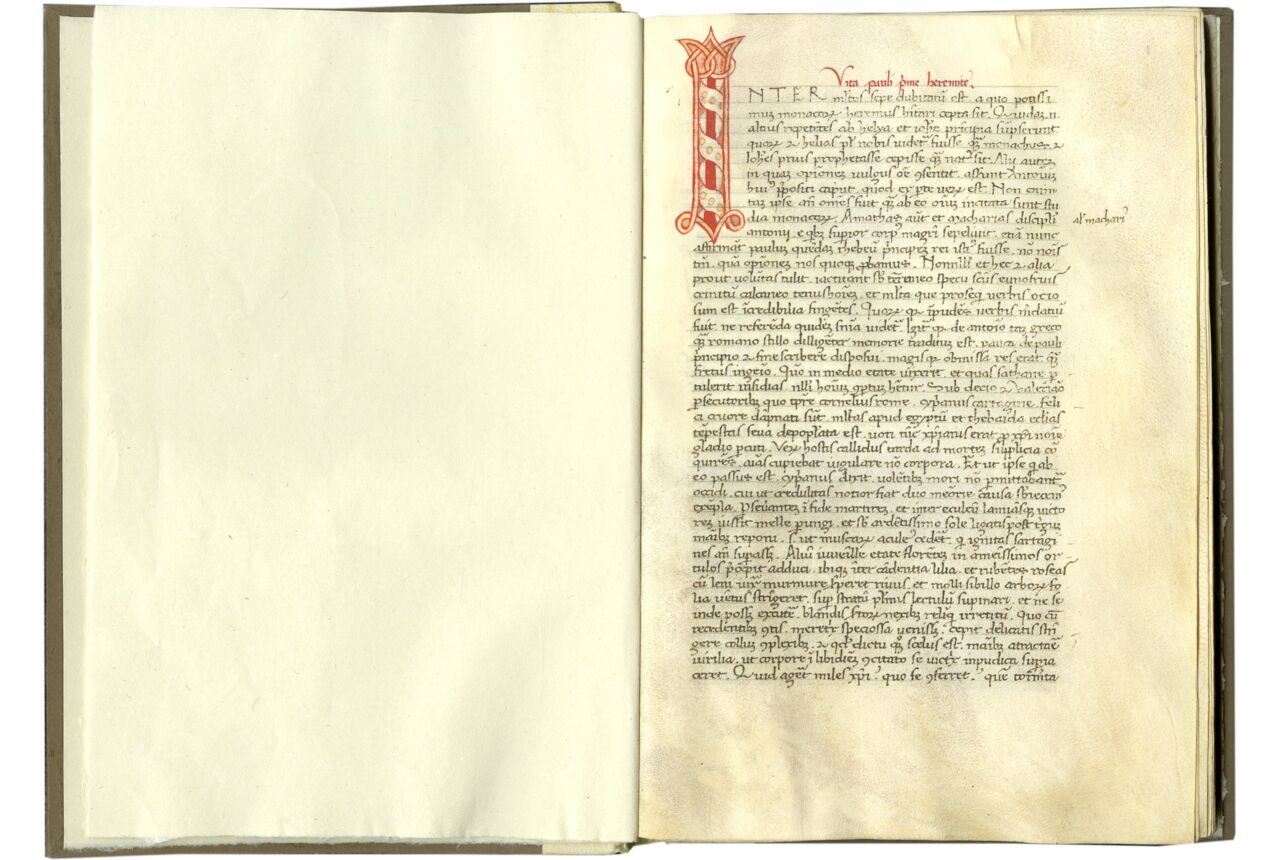 Vita pauli p̃me heremite.
INTER mľtos sepe dubitatũ est. a quo potissi
muȝ monacoꝝ heremus hītari cepta sit. Quidaȝ.
altius repetẽtes ab helya et ioħe prĩcipia sũpserunt
quoꝝ ⁊ helias pľ nobis videt̃ fuisse qȝ̃ monachus ⁊
Ioħes prius prophetasse cepisse qȝ̃ nat⁹ sit. Alij auteȝ
in quaȝ opĩoneȝ vulgus oẽ ꝯsentit. assr̃unt Antoniũ
hui⁹ p̃positi caput. quod ex ꝑte veꝝ est. Non enim
taȝ ipse añ omẽs fuit qȝ̃ ab eo oĩuȝ incitata sunt stu
dia monacoꝝ. Amathas aũt et macharias discipľi
al’ machari⁹
antonij. e qbȝ supior corp⁹ magr̃i sepeliuit. etiã nunc
affirmãt pauluȝ quẽdaȝ thebeũ p̃ncipeȝ rei isti⁹ fuisse. nõ noĩs
tm̃. quã opĩoneȝ nos quoqȝ ꝓbamus. Nonnľli et hec ⁊ alia
prout volũtas tulit. iactitant sb̃ terraneo specu
crinitũ calcaneo tenus hoĩeȝ. et mľta que proseq̃ verbis ocio
sum est ĩcredibilia fingẽtes. Quoꝝ qꝛ ĩpudẽs
fuit. ne referẽda quideȝ sñia videt̃. Igit̃ qꝛ de antoĩo taȝ greco
qȝ̃ romano stillo dilligẽter memorie traditũȝ est. pauca de pauli
p̃ncipio ⁊ fine scribere disposui. magis qꝛ obmissa res erat qȝ̃
fretus ingeĩo. Quõ in medio etate vixerit. et quas sathane ꝑ
tulerit ĩsidias. nľli hoĩuȝ ꝯptuȝ het̃ur. Sub decio ⁊ Valerião
ꝑsecutoribȝ quo tp̃re cornelius rome. cypr̃ianus cartagine. feli
ci cruore dãpnati sũt. mľtas apud egyptũ et thebaida ecľias
tẽpestas seua depopľata est. voti tũc xp̃ianis erat ꝓ xp̃i noĩe
gladio ꝑcuti. Veꝝ hostis callidus tarda ad morteȝ supplicia cõ
quirẽs. aĩas cupiebat iugulare nõ corpora. Et ut ipse q ab
eo passus est. cypr̃ianus dixit. volẽtibȝ mori nõ ꝑmittebant̃
occidi. cui⁹ ut credulitas notior fiat duo meorie causa sbiecim⁹
exẽpla. Pseuãteȝ ĩ fide martireȝ. et inter eculeũ lamiãsqȝ victo
reȝ iussit melle ꝑungi. et sb̃ ardẽtissimo sole ligatis post tgũ
maĩbȝ reponi. s. ut muscaꝝ acule⁹ cedet̃. q ignitas sartagi
nes añ supassȝ. Aliũ iuuenile etate florẽteȝ in ameĩssimos or
tulos p̃cepit adduci. ibiqȝ ĩter cãdentia lilia. et rubẽtes roseas
cũ leni murmure speret riuus. et molli sibillo arboꝝ fo
lia vẽtus strĩgeret. sup stratũ pľmis lectulũ supinari. et ne se
inde possȝ excute. blãdis nexibȝ relĩq irretitũ. Quo cũ
recedentibȝ cẽtis. meretx̃ speciossa venissȝ. cepit delicatis strĩ
gere colluȝ ꝯplexibȝ. ⁊ qd̃ dictu qȝ̃ scelus est. maĩbȝ attractare
virilia. ut corpore ĩ libidieȝ ꝯcitato se victx̃ inpudica supia
ceret. Quid aget̃ miles xp̃i? quo se ꝯferret? quẽ tormẽta